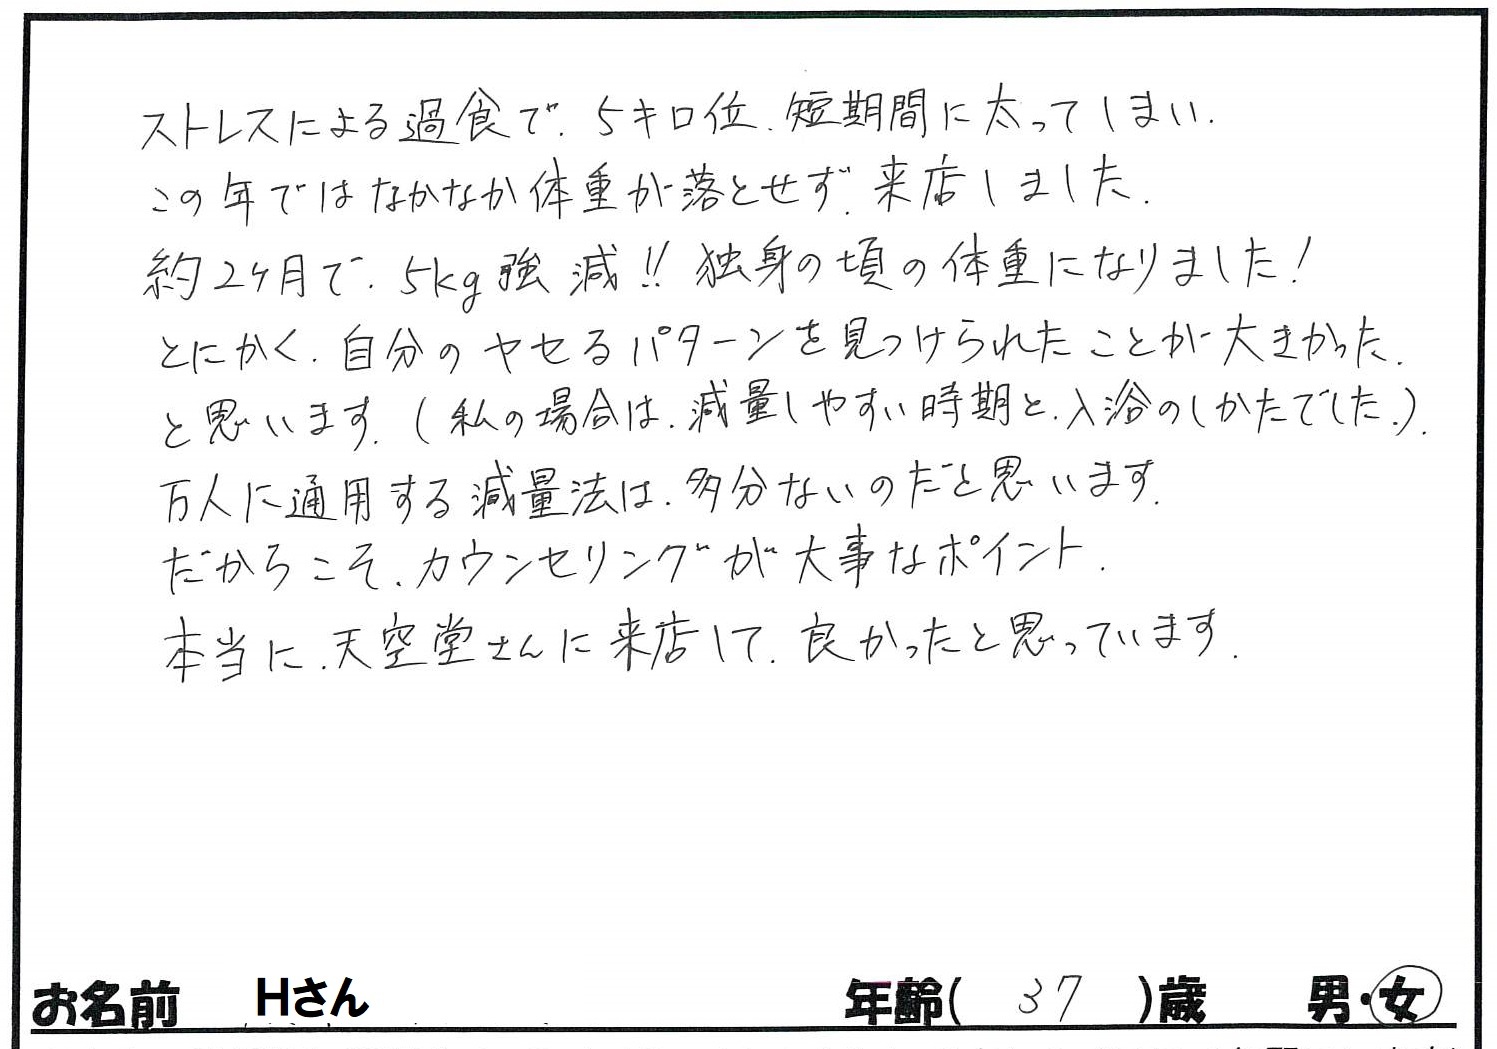 ストレスによる過食で、5キロ位、短期間に太ってしまい、
この年ではなかなか体重が落とせず、来店しました。
約2ヶ月で、5kg強減!! 独身の頃の体重になりました!
とにかく、自分のヤセるパターンを見つけられたことが大きかった、
と思います。(私の場合は、減量しやすい時期と、入浴のしかたでした。)。
万人に通用する減量法は、多分ないのだと思います。
だからこそ、カウンセリングが大事なポイント。
本当に、天空堂さんに来店して、良かったと思っています。
お名前 Hさん 年齢( 37 )歳 男・女